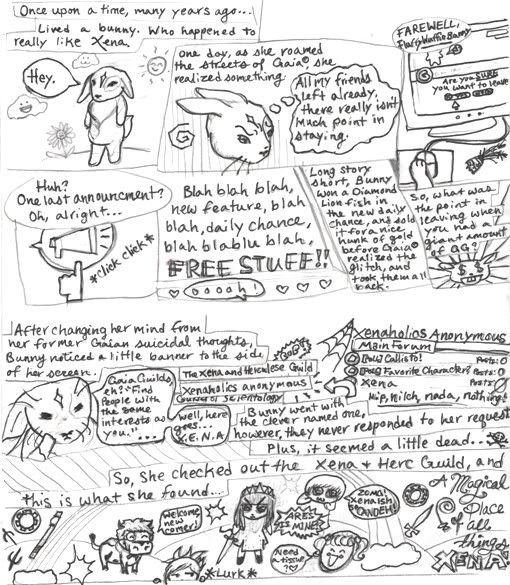 Once upon a time, many years ago...
Lived a bunny. Who happened to
really like Xena.
Hey.
One day, as she roamed
the streets of Gaia©, she
realized something.
All my friends
left already,
there really isn't
much point in
staying.
G
FAREWELL,
Are you SURE
you want to leave
Huh?
One last announcment?
Oh, alright...
*click click*
Blah blah blah,
new feature, blah
blah, daily chance,
blah blablu blah,
FREE STUFF!!
ooooh!
Long story
short, Bunny
won a Diamond
Lion fish in
the new daily
chance, and sold
it for a nice
hunk of gold
before Gaia©
realized the
glitch, and
took them all
back.
So, what was
the point in
leaving when
you had a
giant amount
of GG?
After changing her mind from
her former Gaian suicidal thoughts,
Bunny noticed a little banner to the side
of her screen.
Gaia Guilds,
eh? "Find
People with
the same
interests as
you."...
The Xena and Herculese Guild
Xenaholics anonymous
Church of Scientology
Well, here
goes...
X.E.N.A
Bunny went with
the clever named one,
however, they never responded to her request
Plus, it seemed a little dead...
Xenaholics Anonymous
Main Forum
[Poll] Callisto!
Posts: 0
[Poll] Favorite Character?
Posts: 0
Xena
Posts: 0
Nip, milch, nada, nothing!
So, she checked out the Xena & Herc Guild, and
this is what she found...
Welcome
newcomer!
*Lurk*
ARES
IS MINE!
Need a
tissue?
ZOMG!
XENA ISH
SO CANDEH!
A Magical
Place
of all
things
XENA